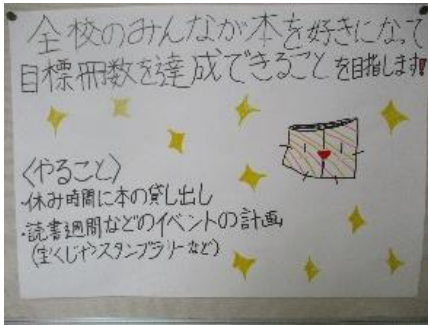 全校のみんなが本を好きになって
目標冊数を達成できることを目指します!
〈やること〉
・休み時間に本の貸し出し
・読書週間などのイベントの計画
(宝くじやスタンプラリーなど)